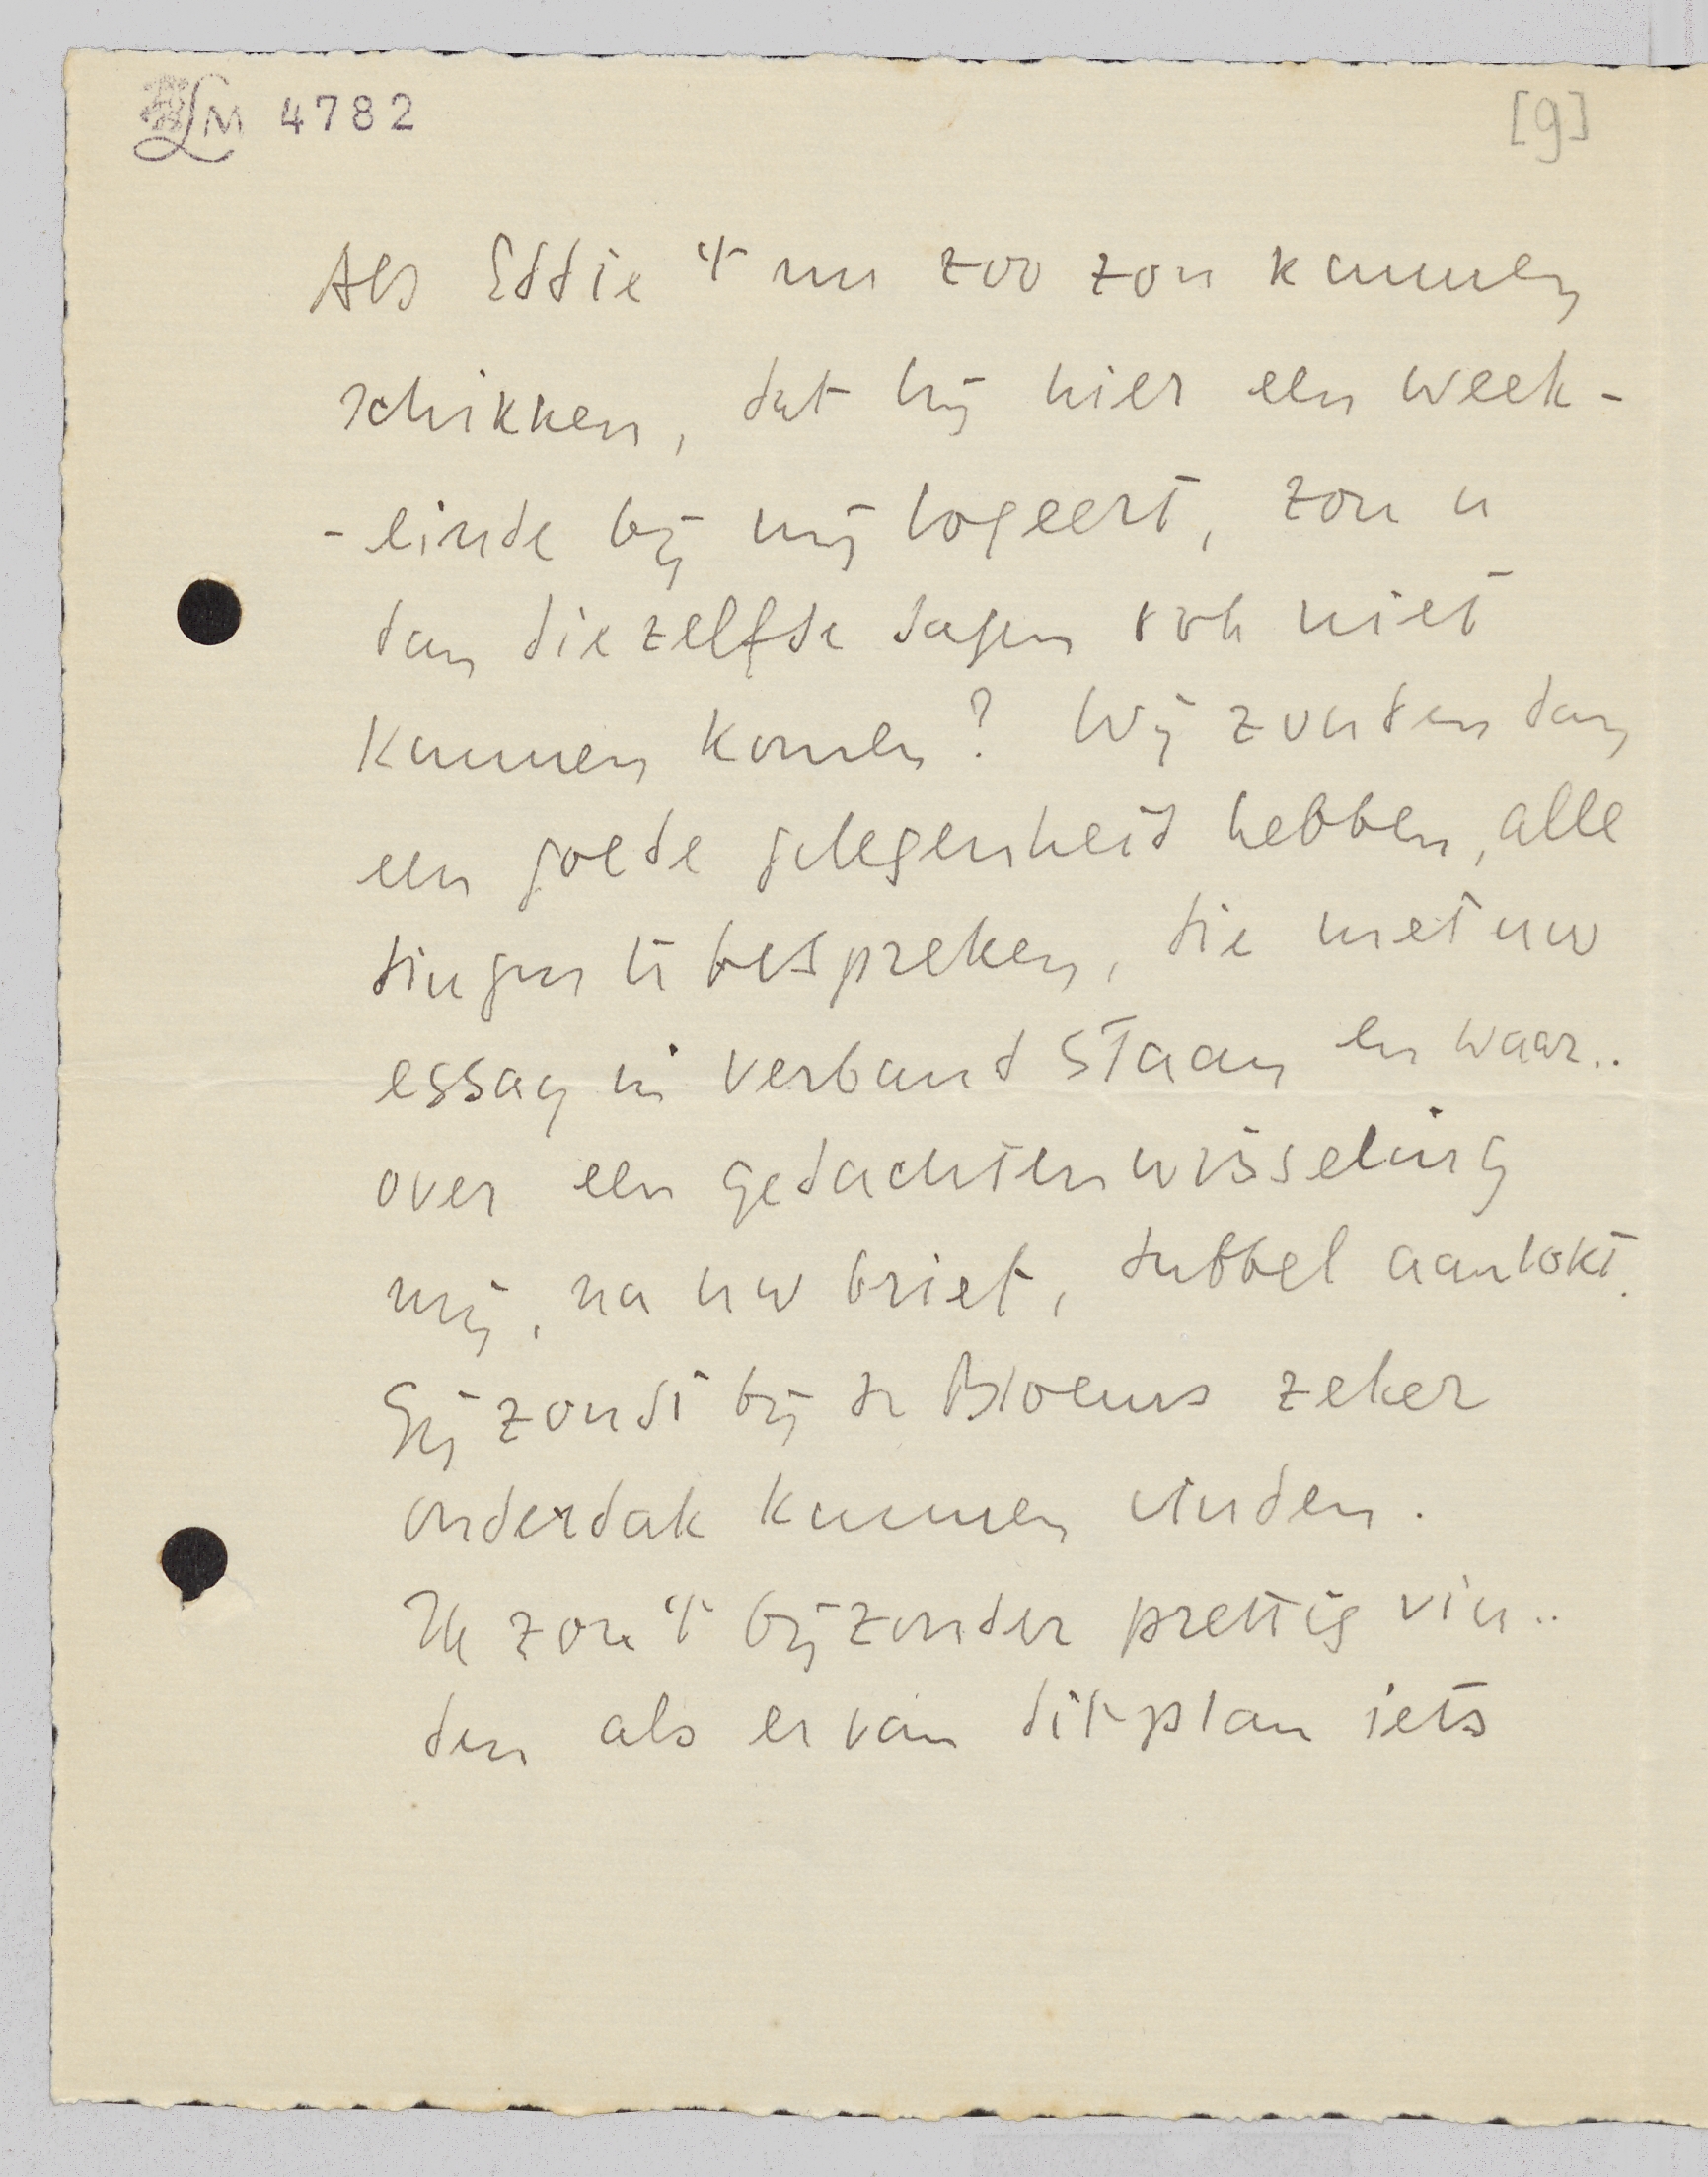 LM 4782
[9]
Als Eddie 't nu zoo zou kunnen
schikken, dat hij hier een week-
-einde bij mij logeert, zou u
dan diezelfde dagen ook niet
kunnen komen? Wij zouden dan
een goede gelegenheid hebben, alle
dingen te bespreken, die met uw
essay in verband staan en waar..
over een gedachtenwisseling
mij, na uw brief, dubbel aanlokt.
Gij zoudt bij de Bloems zeker
onderdak kunnen vinden.
Ik zou 't bijzonder prettig vin..
den als er van dit plan iets